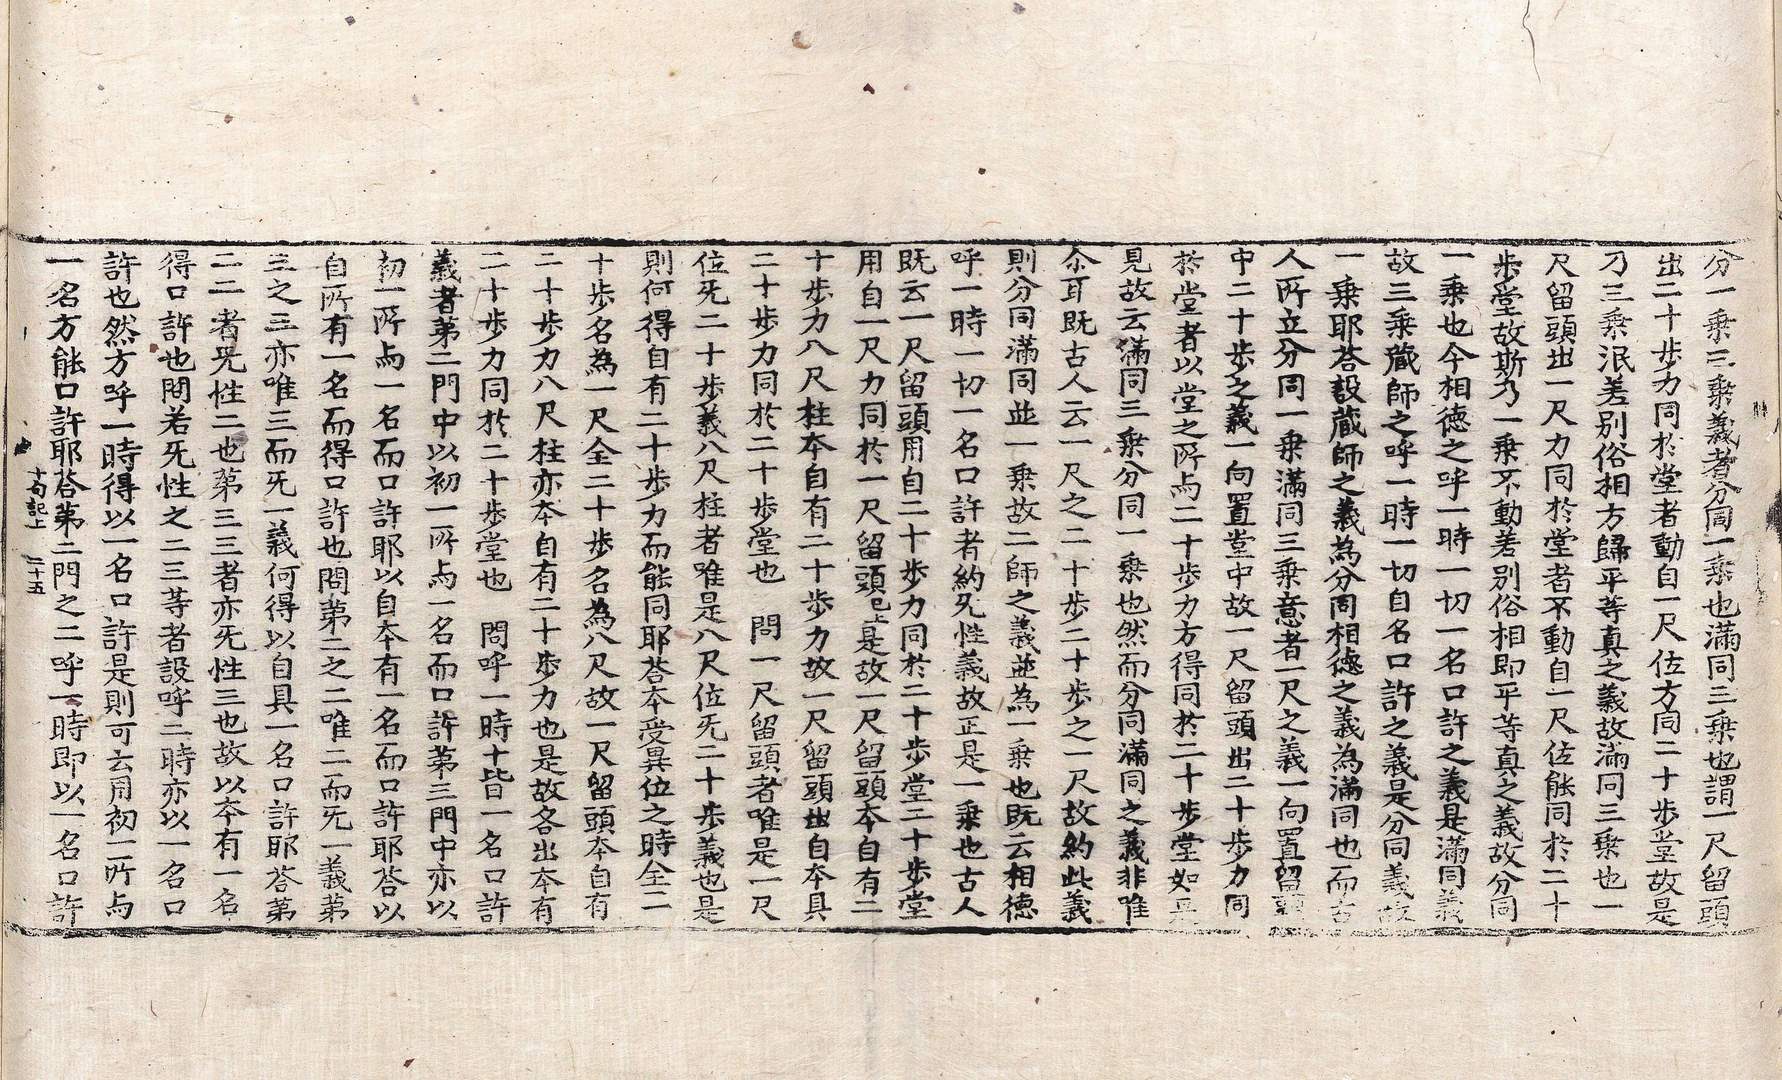 分一乗三乗義者分同一乗也滿同三乗也謂一尺留頭
出二十歩力同扵堂者動自一尺佐方同二十歩堂故是
乃三乗泯差別俗相方歸平等真之義故滿同三乗也一
尺留頭出一尺力同扵堂者不動自一尺佐能同扵二十
歩堂故斯乃一乗不動差別俗相即平等真之義故分同
一乗也今相德之呼一時一切一名口許之義是滿同義
故三乗蔵師之呼一時一切自名口許之義是分同義故
一乗耶荅設蔵師之義為分同相德之義為滿同也而古
人所立分同一乗滿同三乗意者一尺之義一向置留頭
中二十歩之義一向置堂中故一尺留頭出二十歩力同
扵堂者以堂之所与二十歩力方得同扵二十歩堂如是
見故云滿同三乗分同一乗也然而分同滿同之義非唯
尒耳既古人云一尺之二十歩二十歩之一尺故約此義
則分同滿同並一乗故二師之義並為一乗也既云相德
呼一時一切一名口許者約旡性義故正是一乗也古人
既云一尺留頭用自二十歩力同扵二十歩堂二十歩堂
用自一尺力同扵一尺留頭已上是故一尺留頭夲自有二
十歩力八尺柱夲自有二十歩力故一尺留頭出自夲具
二十歩力同扵二十歩堂也　問一尺留頭者唯是一尺
位旡二十歩義八尺柱者唯是八尺位旡二十歩義也是
則何得自有二十歩力而能同耶荅夲受異位之時全二
十歩名為一尺全二十歩名為八尺故一尺留頭夲自有
二十歩力八尺柱亦夲自有二十歩力也是故各出夲有
二十歩力同扵二十歩堂也　問呼一時十皆曰一名口許
義者第二門中以初一所与一名而口許第三門中亦以
初一所与一名而口許耶以自夲有一名而口許耶荅以
自所有一名而得口許也問第二之二唯二而旡一義第
三之三亦唯三而旡一義何得以自具一名口許耶荅第
二二者旡性二也第三三者亦旡性三也故以夲有一名
得口許也問若旡性之二三等者設呼二時亦以一名口
許也然方呼一時得以一名口許是則可云用初一所与
一名方能口許耶荅第二門之二呼一時即以一名口許
十句記上　二十五